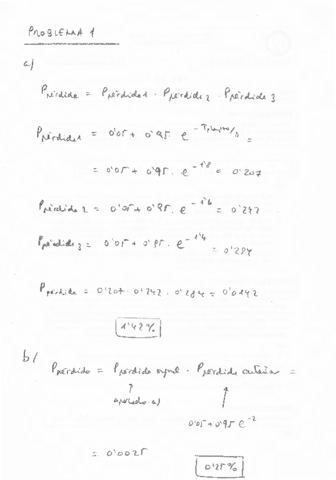 PROBLEMA 1
a)
Ppérdida = Ppérdida1 · Ppérdida2 · Ppérdida3
Ppérdida1 = 0'05 + 0'95 · e^-Tiempo/5 =
= 0'05 + 0'95 · e^-1'8 = 0'207
Ppérdida2 = 0'05 + 0'95 · e^-1'6 = 0'242
Ppérdida3 = 0'05 + 0'95 · e^-1'4 = 0'284
Ppérdida = 0'207 · 0'242 · 0'284 = 0'0142
1'42%
b/
Pperdido = Pperdido · Pperdido =
apartado a)
0'05 + 0'95 e^-2
= 0'0025
0'25%